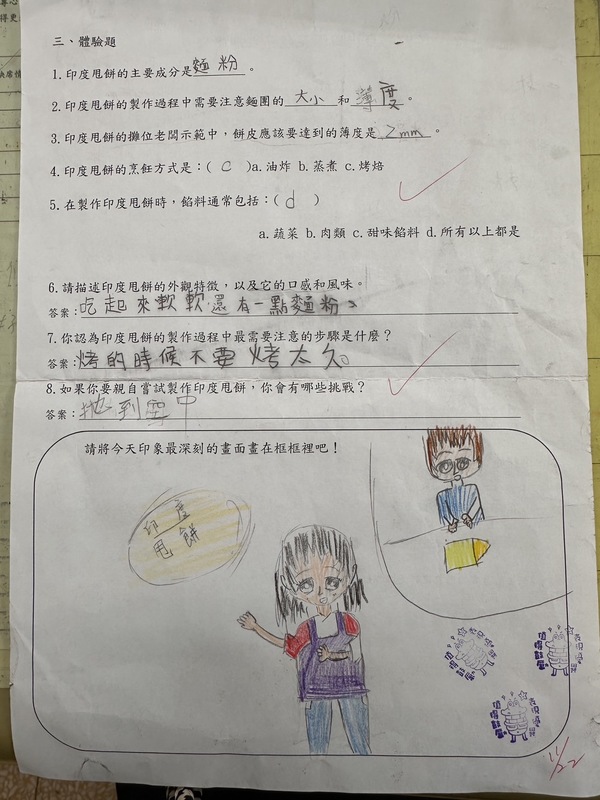 三、體驗題
1.印度甩餅的主要成分是麵粉。
2.印度甩餅的製作過程中需要注意麵團的大小和薄度。
3.印度甩餅的攤位老闆示範中，餅皮應該要達到的薄度是2mm。
4.印度甩餅的烹飪方式是：( c )a.油炸 b.蒸煮 c.烤焙
5.在製作印度甩餅時，餡料通常包括：( d )
a.蔬菜 b.肉類 c.甜味餡料 d.所有以上都是
6.請描述印度甩餅的外觀特徵，以及它的口感和風味。
答案：吃起來軟軟還有一點麵粉。
7.你認為印度甩餅的製作過程中最需要注意的步驟是什麼？
答案：烤的時候不要烤太久。
8.如果你要親自嘗試製作印度甩餅，你會有哪些挑戰？
答案：拋到空中
請將今天印象最深刻的畫面畫在框框裡吧！
印度
甩餅
11/22